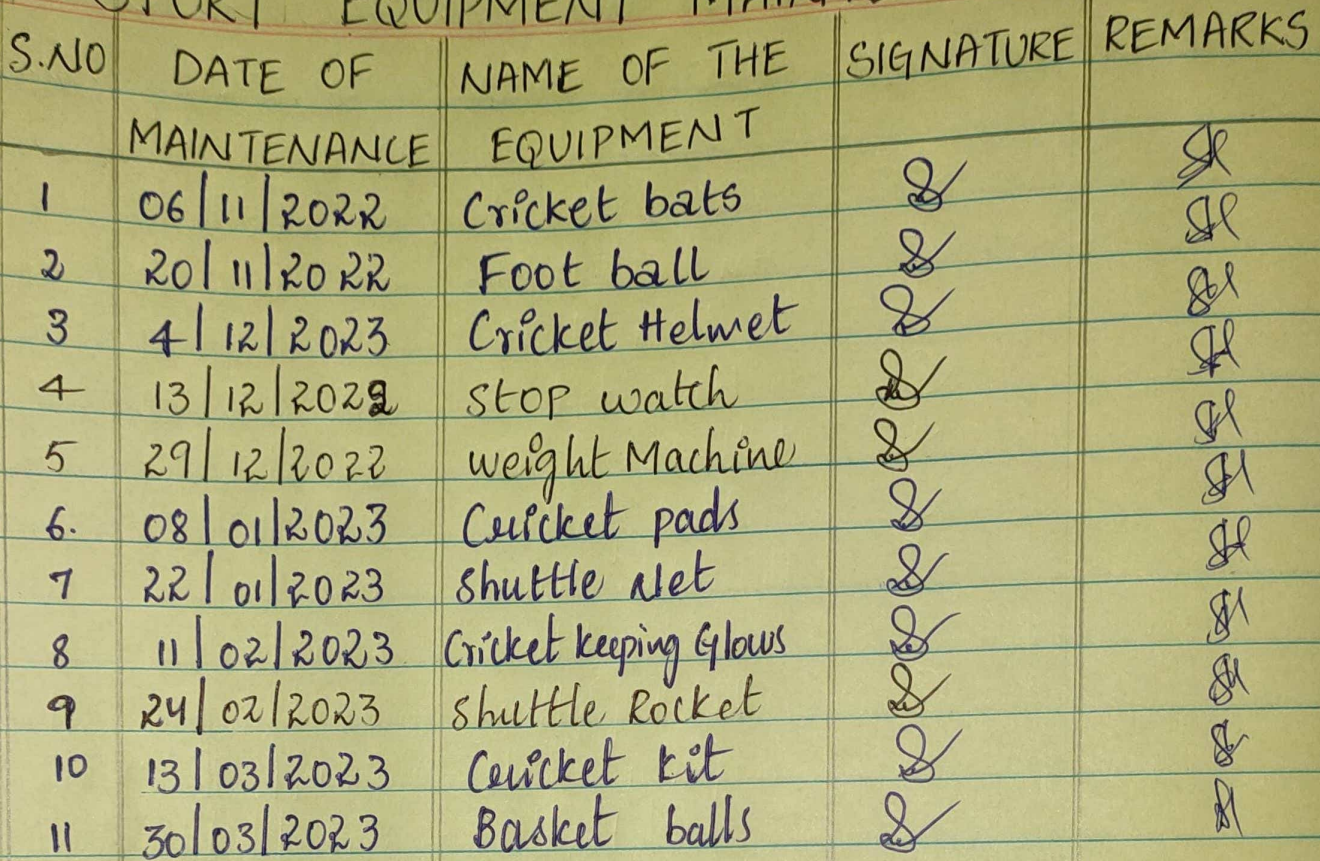 EQUIPMENT
S.NO DATE OF MAINTENANCE NAME OF THE EQUIPMENT SIGNATURE REMARKS
1 06/11/2022 Cricket bats
2 20/11/2022 Foot ball
3 4/12/2023 Cricket Helmet
4 13/12/2022 Stop watch
5 29/12/2022 weight Machine
6. 08/01/2023 Cricket pads
7 22/01/2023 Shuttle Net
8 11/02/2023 Cricket keeping Glows
9 24/02/2023 Shuttle Rocket
10 13/03/2023 Cricket kit
11 30/03/2023 Basket balls